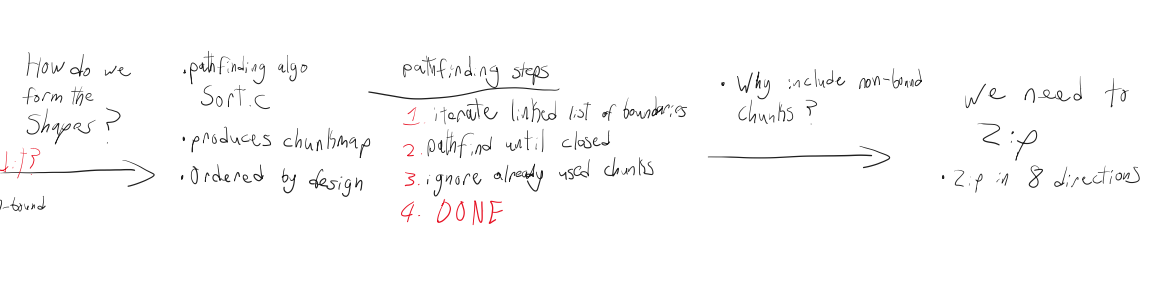 How do we
form the
Shapes?
n-bound
• pathfinding algo
Sort.c
• produces chunkmap
• Ordered by design
pathfinding steps
1. iterate linked list of boundaries
2. pathfind until closed
3. ignore already used chunks
4. DONE
• Why include non-bound
chunks?
We need to
Zip
• Zip in 8 directions